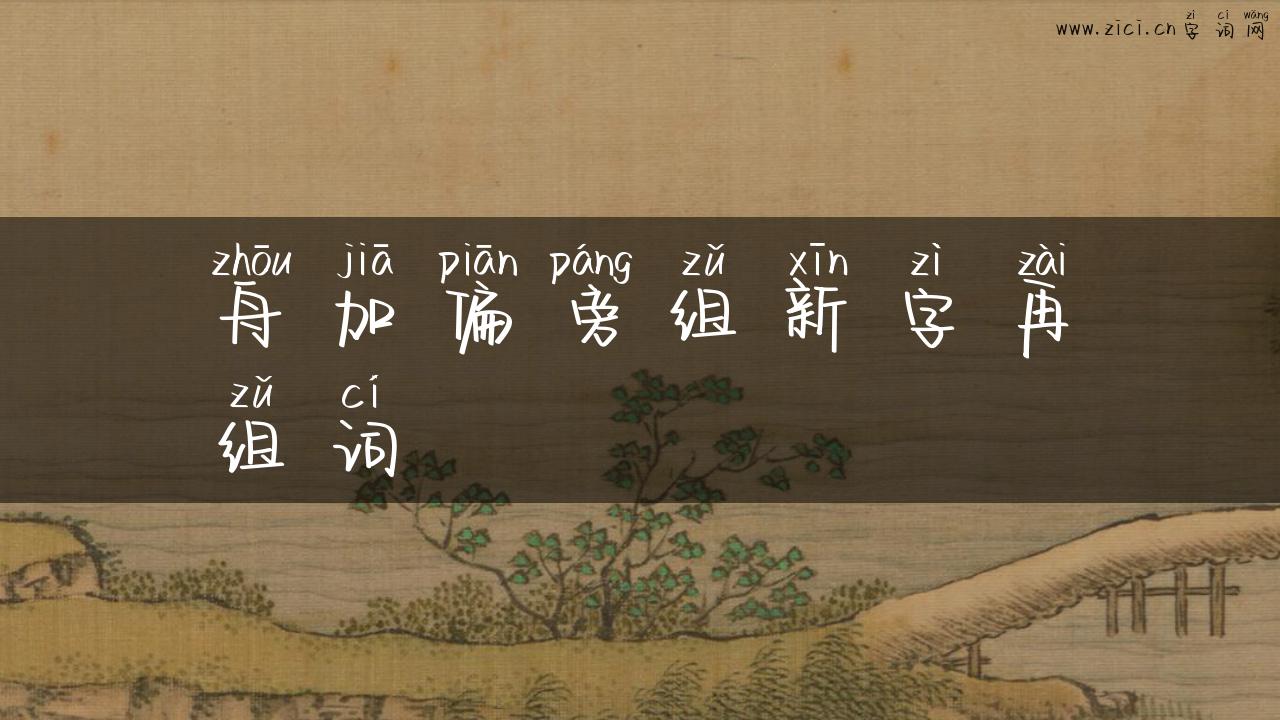 zì cí wǎng
www.zici.cn 字词网
zhōu jiā piān páng zǔ xīn zì zài
舟加偏旁组新字再
zǔ cí
组词